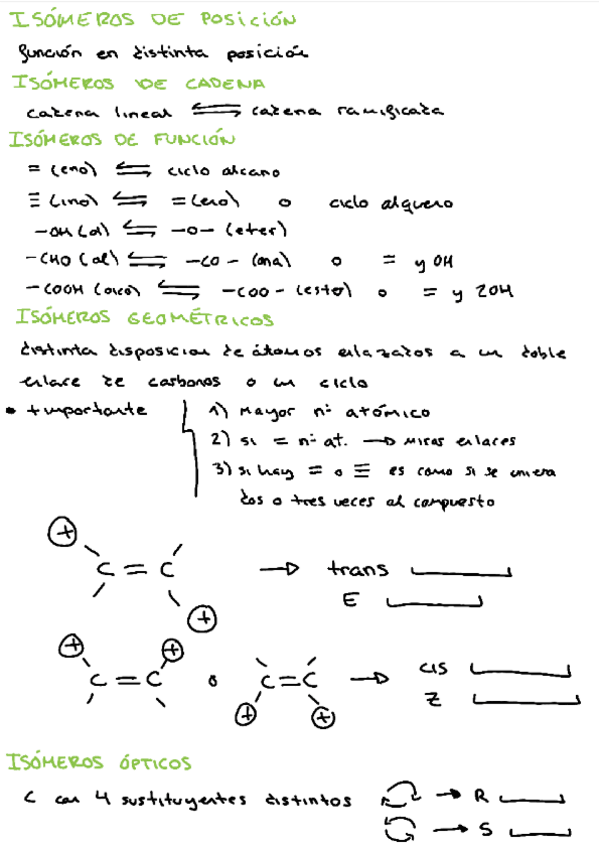 ISÓMEROS DE POSICIÓN
función en distinta posición
ISÓMEROS DE CADENA
cadena lineal ⇌ cadena ramificada
ISÓMEROS DE FUNCIÓN
= (eno) ⇌ ciclo alcano
≡ (ino) ⇌ = (eno) o ciclo alqueno
-OH (ol) ⇌ -O- (eter)
-CHO (al) ⇌ -CO- (ona) o = y OH
-COOH (oico) ⇌ -COO- (ester) o = y 2OH
ISÓMEROS GEOMÉTRICOS
distinta disposicion de átomos enlazados a un doble
enlace de carbonos o un ciclo
• + importante
1) Mayor nº atómico
2) si = nº at. → miras enlaces
3) si hay = o ≡ es como si se uniera
dos o tres veces al compuesto
+
C = C → trans
E
+
+ +
C = C o C = C → cis
Z
+ +
ISÓMEROS ÓPTICOS
C con 4 sustituyentes distintos → R
→ S